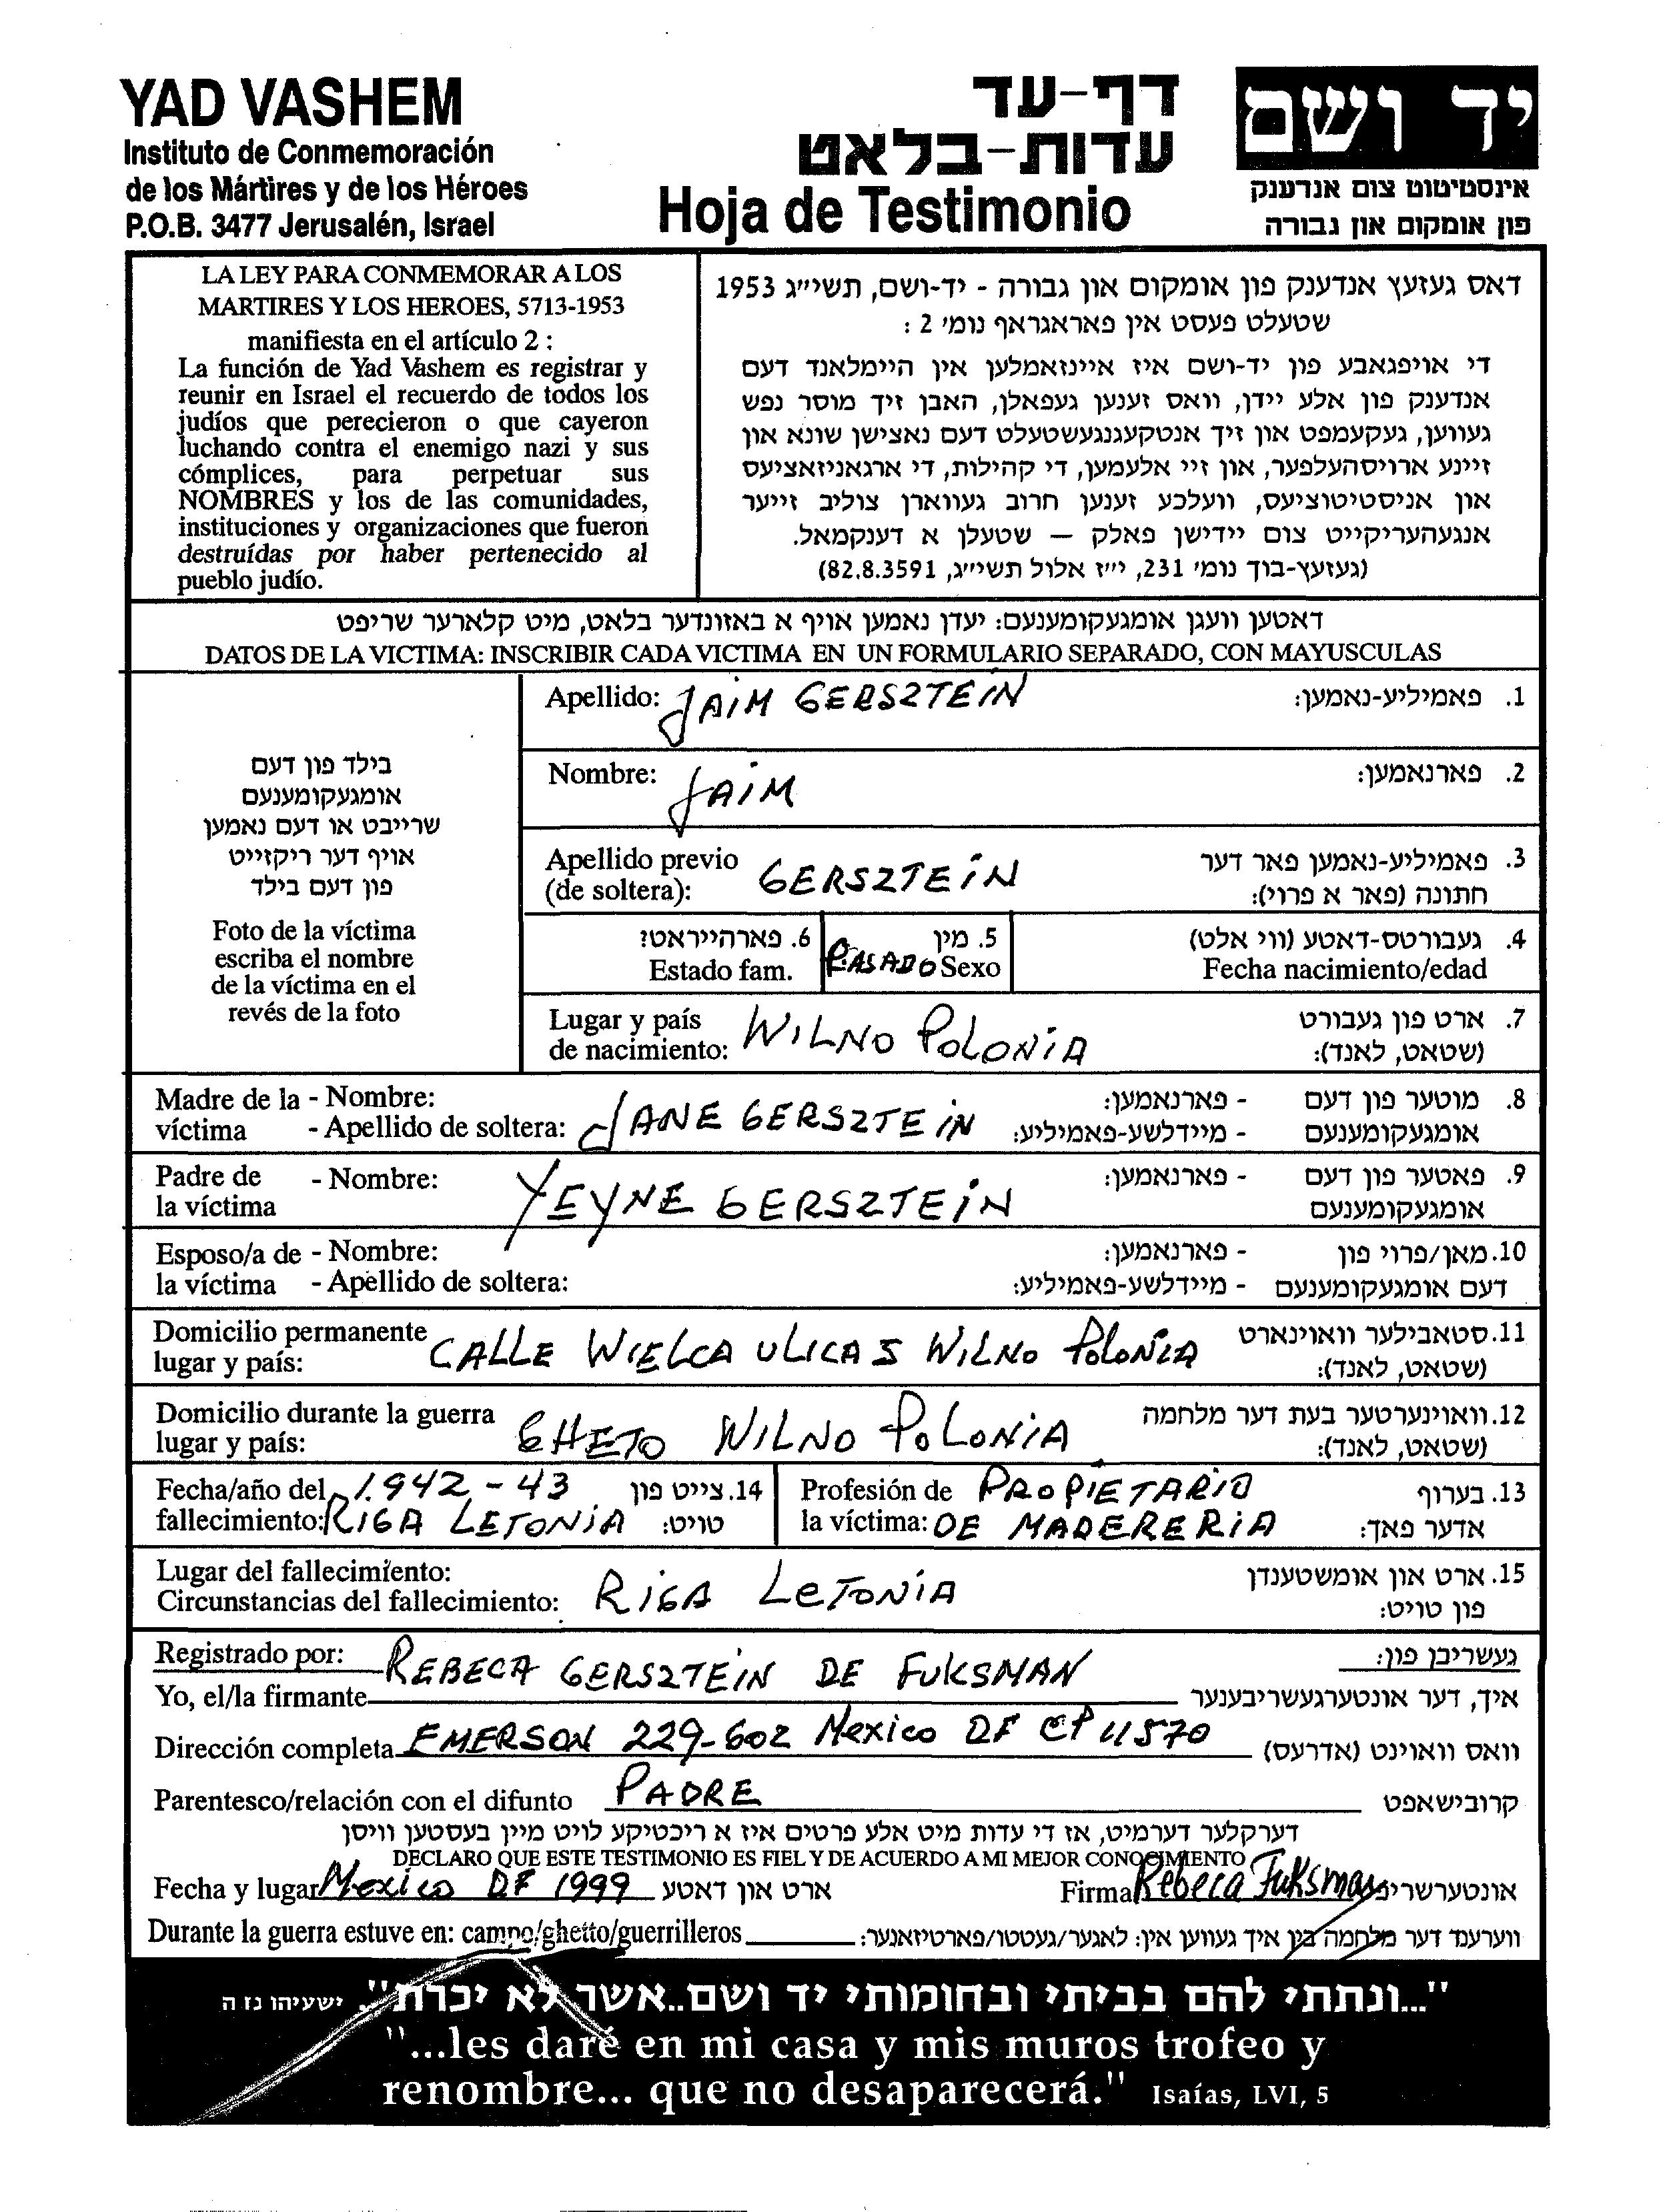 YAD VASHEM
Instituto de Conmemoración
de los Mártires y de los Héroes
P.O.B. 3477 Jerusalén, Israel
דף-עד
עדות-בלאט
Hoja de Testimonio
יד ושם
אינסטיטוט צום אנדענק
פון אומקום און גבורה
LA LEY PARA CONMEMORAR A LOS
MARTIRES Y LOS HEROES, 5713-1953
manifiesta en el artículo 2 :
La función de Yad Vashem es registrar y
reunir en Israel el recuerdo de todos los
judíos que perecieron o que cayeron
luchando contra el enemigo nazi y sus
cómplices, para perpetuar sus
NOMBRES y los de las comunidades,
instituciones y organizaciones que fueron
destruídas por haber pertenecido al
pueblo judío.
דאס געזעץ אנדענק פון אומקום און גבורה - יד-ושם, תשי״ג 1953
שטעלט פעסט אין פאראגראף נומ׳ 2 :
די אויפגאבע פון יד-ושם איז איינזאמלען אין היימלאנד דעם
אנדענק פון אלע יידן, וואס זענען געפאלן, האבן זיך מוסר נפש
געווען, געקעמפט און זיך אנטקעגנגעשטעלט דעם נאצישן שונא און
זיינע ארויסהעלפער, און זיי אלעמען, די קהילות, די ארגאניזאציעס
און אניסטיטוציעס, וועלכע זענען חרוב געווארן צוליב זייער
אנגעהעריקייט צום יידישן פאלק — שטעלן א דענקמאל.
(געזעץ-בוך נומ׳ 231, י״ז אלול תשי״ג, 82.8.3591)
דאטען וועגן אומגעקומענעם: יעדן נאמען אויף א באזונדער בלאט, מיט קלארער שריפט
DATOS DE LA VICTIMA: INSCRIBIR CADA VICTIMA EN UN FORMULARIO SEPARADO, CON MAYUSCULAS
בילד פון דעם
אומגעקומענעם
שרייבט או דעם נאמען
אויף דער ריקזייט
פון דעם בילד
Foto de la víctima
escriba el nombre
de la víctima en el
revés de la foto
Apellido: JAIM GERSZTEIN 1. פאמיליע-נאמען:
Nombre: JAIM 2. פארנאמען:
Apellido previo GERSZTEIN 3. פאמיליע-נאמען פאר דער
(de soltera): חתונה (פאר א פרוי):
6. פארהייראט? 5. מין 4. געבורטס-דאטע (ווי אלט)
Estado fam. CASADO Sexo Fecha nacimiento/edad
Lugar y país WILNO POLONIA 7. ארט פון געבורט
de nacimiento: (שטאט, לאנד):
Madre de la - Nombre: - פארנאמען: 8. מוטער פון דעם
víctima - Apellido de soltera: JANE GERSZTEIN - מיידלשע-פאמיליע: אומגעקומענעם
Padre de - Nombre: YEYNE GERSZTEIN - פארנאמען: 9. פאטער פון דעם
la víctima אומגעקומענעם
Esposo/a de - Nombre: - פארנאמען: 10. מאן/פרוי פון
la víctima - Apellido de soltera: - מיידלשע-פאמיליע: דעם אומגעקומענעם
Domicilio permanente CALLE WIELCA ULICA 5 WILNO POLONIA 11. סטאבילער וואוינארט
lugar y país: (שטאט, לאנד):
Domicilio durante la guerra GHETO WILNO POLONIA 12. וואוינערטער בעת דער מלחמה
lugar y país: (שטאט, לאנד):
Fecha/año del 1.942 - 43 14. צייט פון Profesión de PROPIETARIO 13. בערוף
fallecimiento: RIGA LETONIA טויט: la víctima: DE MADERERIA אדער פאך:
Lugar del fallecimíento: 15. ארט און אומשטענדן
Circunstancias del fallecimiento: RIGA LETONIA פון טויט:
Registrado por: REBECA GERSZTEIN DE FUKSMAN געשריבן פון:
Yo, el/la firmante איך, דער אונטערגעשריבענער
Dirección completa EMERSON 229-602 Mexico DF CP 11570 וואס וואוינט (אדרעס)
Parentesco/relación con el difunto PADRE קרובישאפט
דערקלער דערמיט, אז די עדות מיט אלע פרטים איז א ריכטיקע לויט מיין בעסטען וויסן
DECLARO QUE ESTE TESTIMONIO ES FIEL Y DE ACUERDO A MI MEJOR CONOCIMIENTO
Fecha y lugar Mexico DF 1999 ארט און דאטע Firma Rebeca Fuksman אונטערשריפט
Durante la guerra estuve en: campo/ghetto/guerrilleros ווערענד דער מלחמה בין איך געווען אין: לאגער/געטטו/פארטיזאנער:
"...ונתתי להם בביתי ובחומותי יד ושם..אשר לא יכרת." ישעיהו נז ה
"...les daré en mi casa y mis muros trofeo y
renombre... que no desaparecerá." Isaías, LVI, 5